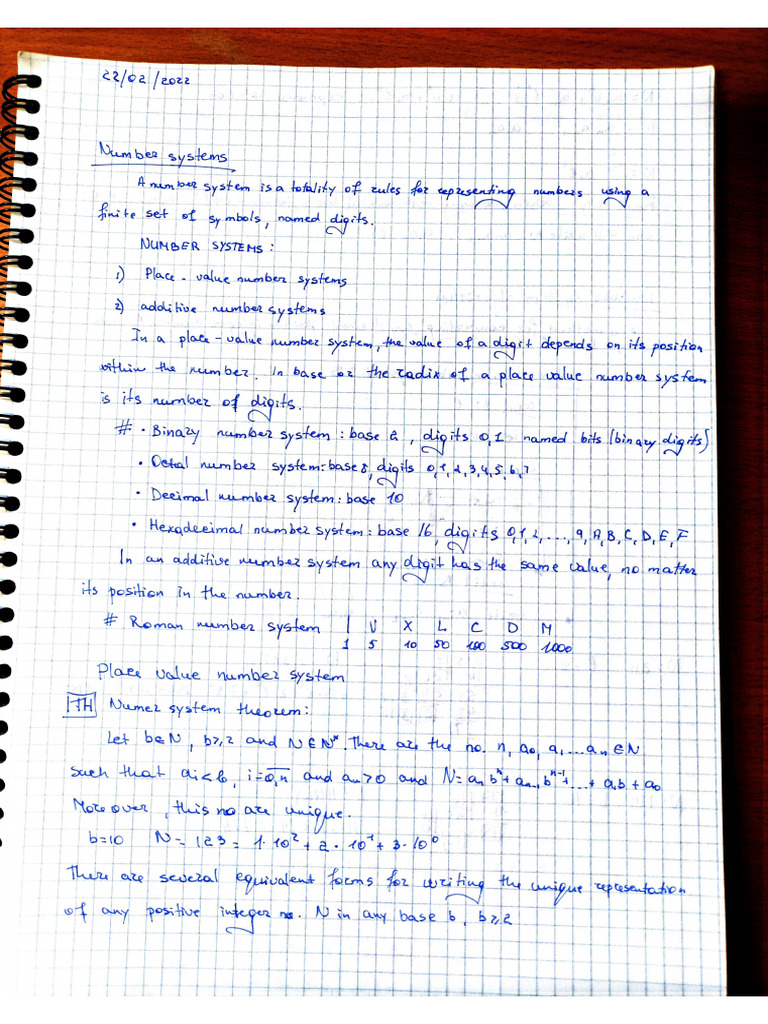 22/02/2022
Number systems
A number system is a totality of rules for representing numbers using a
finite set of symbols, named digits.
NUMBER SYSTEMS:
1) Place-value number systems
2) additive number systems
In a place-value number system, the value of a digit depends on its position
within the number. In base or the radix of a place value number system
is its number of digits.
# • Binary number system: base 2, digits 0,1 named bits (binary digits)
• Octal number system: base 8, digits 0,1,2,3,4,5,6,7
• Decimal number system: base 10
• Hexadecimal number system: base 16, digits 0,1,2,...,9,A,B,C,D,E,F
In an additive number system any digit has the same value, no matter
its position in the number.
# Roman number system I V X L C D M
1 5 10 50 100 500 1000
Place value number system
TH Numer system theorem:
Let b∈N, b≥2 and N∈N*. There are the no. n, a₀, a₁...aₙ∈N
such that aᵢ<b, i=0,n and aₙ>0 and N=aₙbⁿ+aₙ₋₁bⁿ⁻¹+...+a₁b+a₀
Moreover, this no are unique.
b=10 N=123=1·10²+2·10¹+3·10⁰
There are several equivalent forms for writing the unique representation
of any positive integer no. N in any base b, b≥2